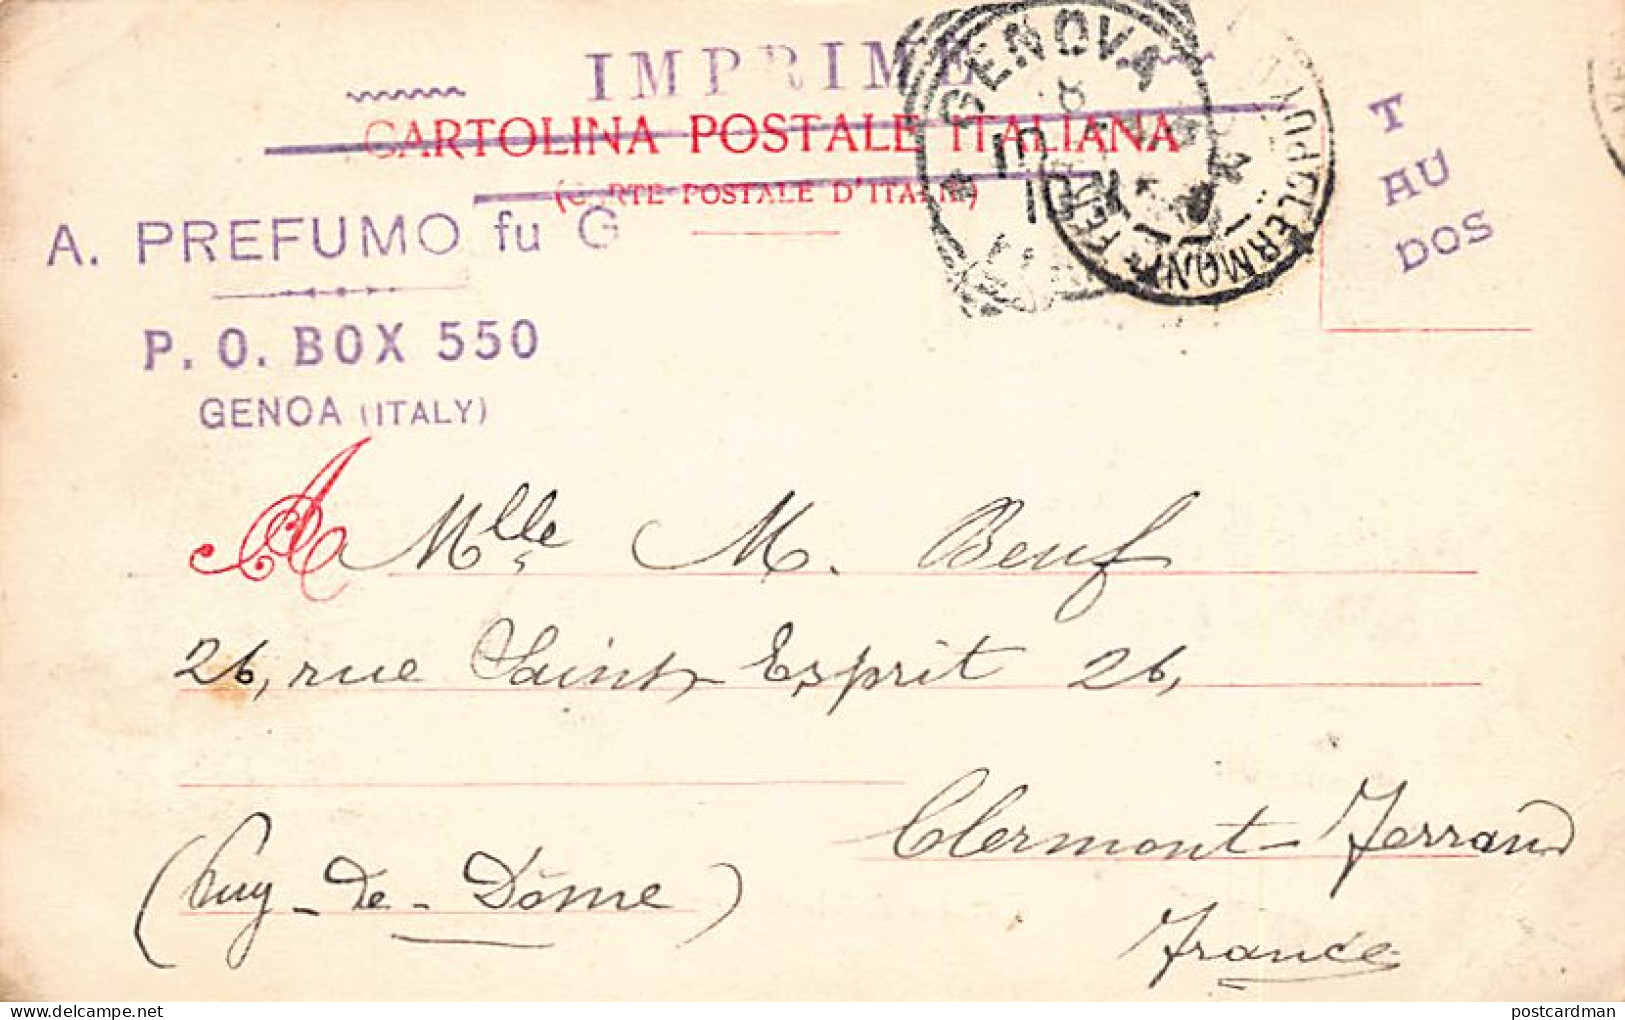 IMPRIMÉ
CARTOLINA POSTALE ITALIANA
(CARTE POSTALE D'ITALIE)
GENOVA
CLERMONT FERRAND
PUY
T
AU
DOS
A. PREFUMO fu G
P. O. BOX 550
GENOA (ITALY)
A Mlle M. Beuf
26, rue Saint-Esprit 26,
Clermont-Ferrand
(Puy-de-Dôme)
France
postcardman